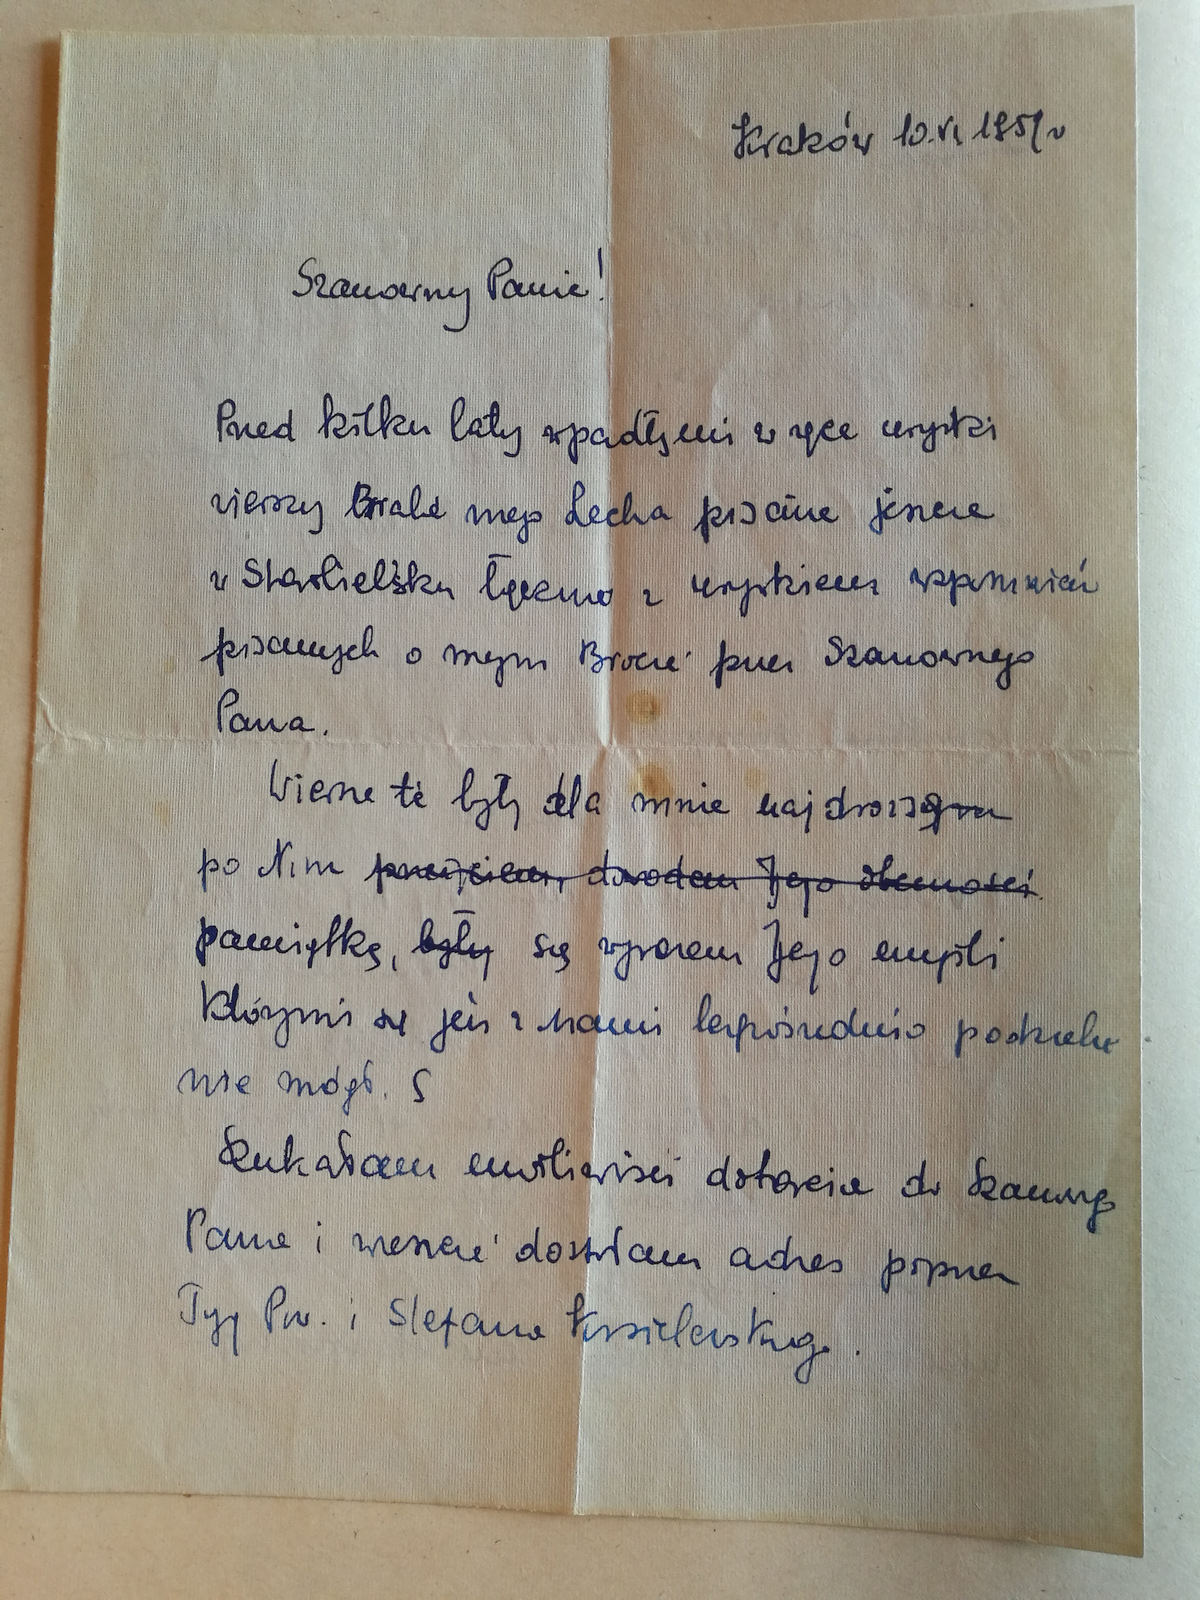 Kraków 10.VI 1957 r
Szanowny Panie!
Przed kilku laty wpadły mi w ręce urywki
wierszy Brata mego Lecha pisane jeszcze
w Starobielsku łącznie z urywkiem wspomnień
pisanych o mym Bracie przez Szanownego
Pana.
Wiersze te były dla mnie najdroższą
po Nim przeżyciem, dowodem Jego obecności
pamiątką, były są wyrazem Jego myśli
którymi się już z nami bezpośrednio podzielić
nie mógł. S
Szukałam możliwości dotarcia do Szanownego
Pana i wreszcie dostałam adres poprzez
Tyg Pow. i Stefana Kisielewskiego.